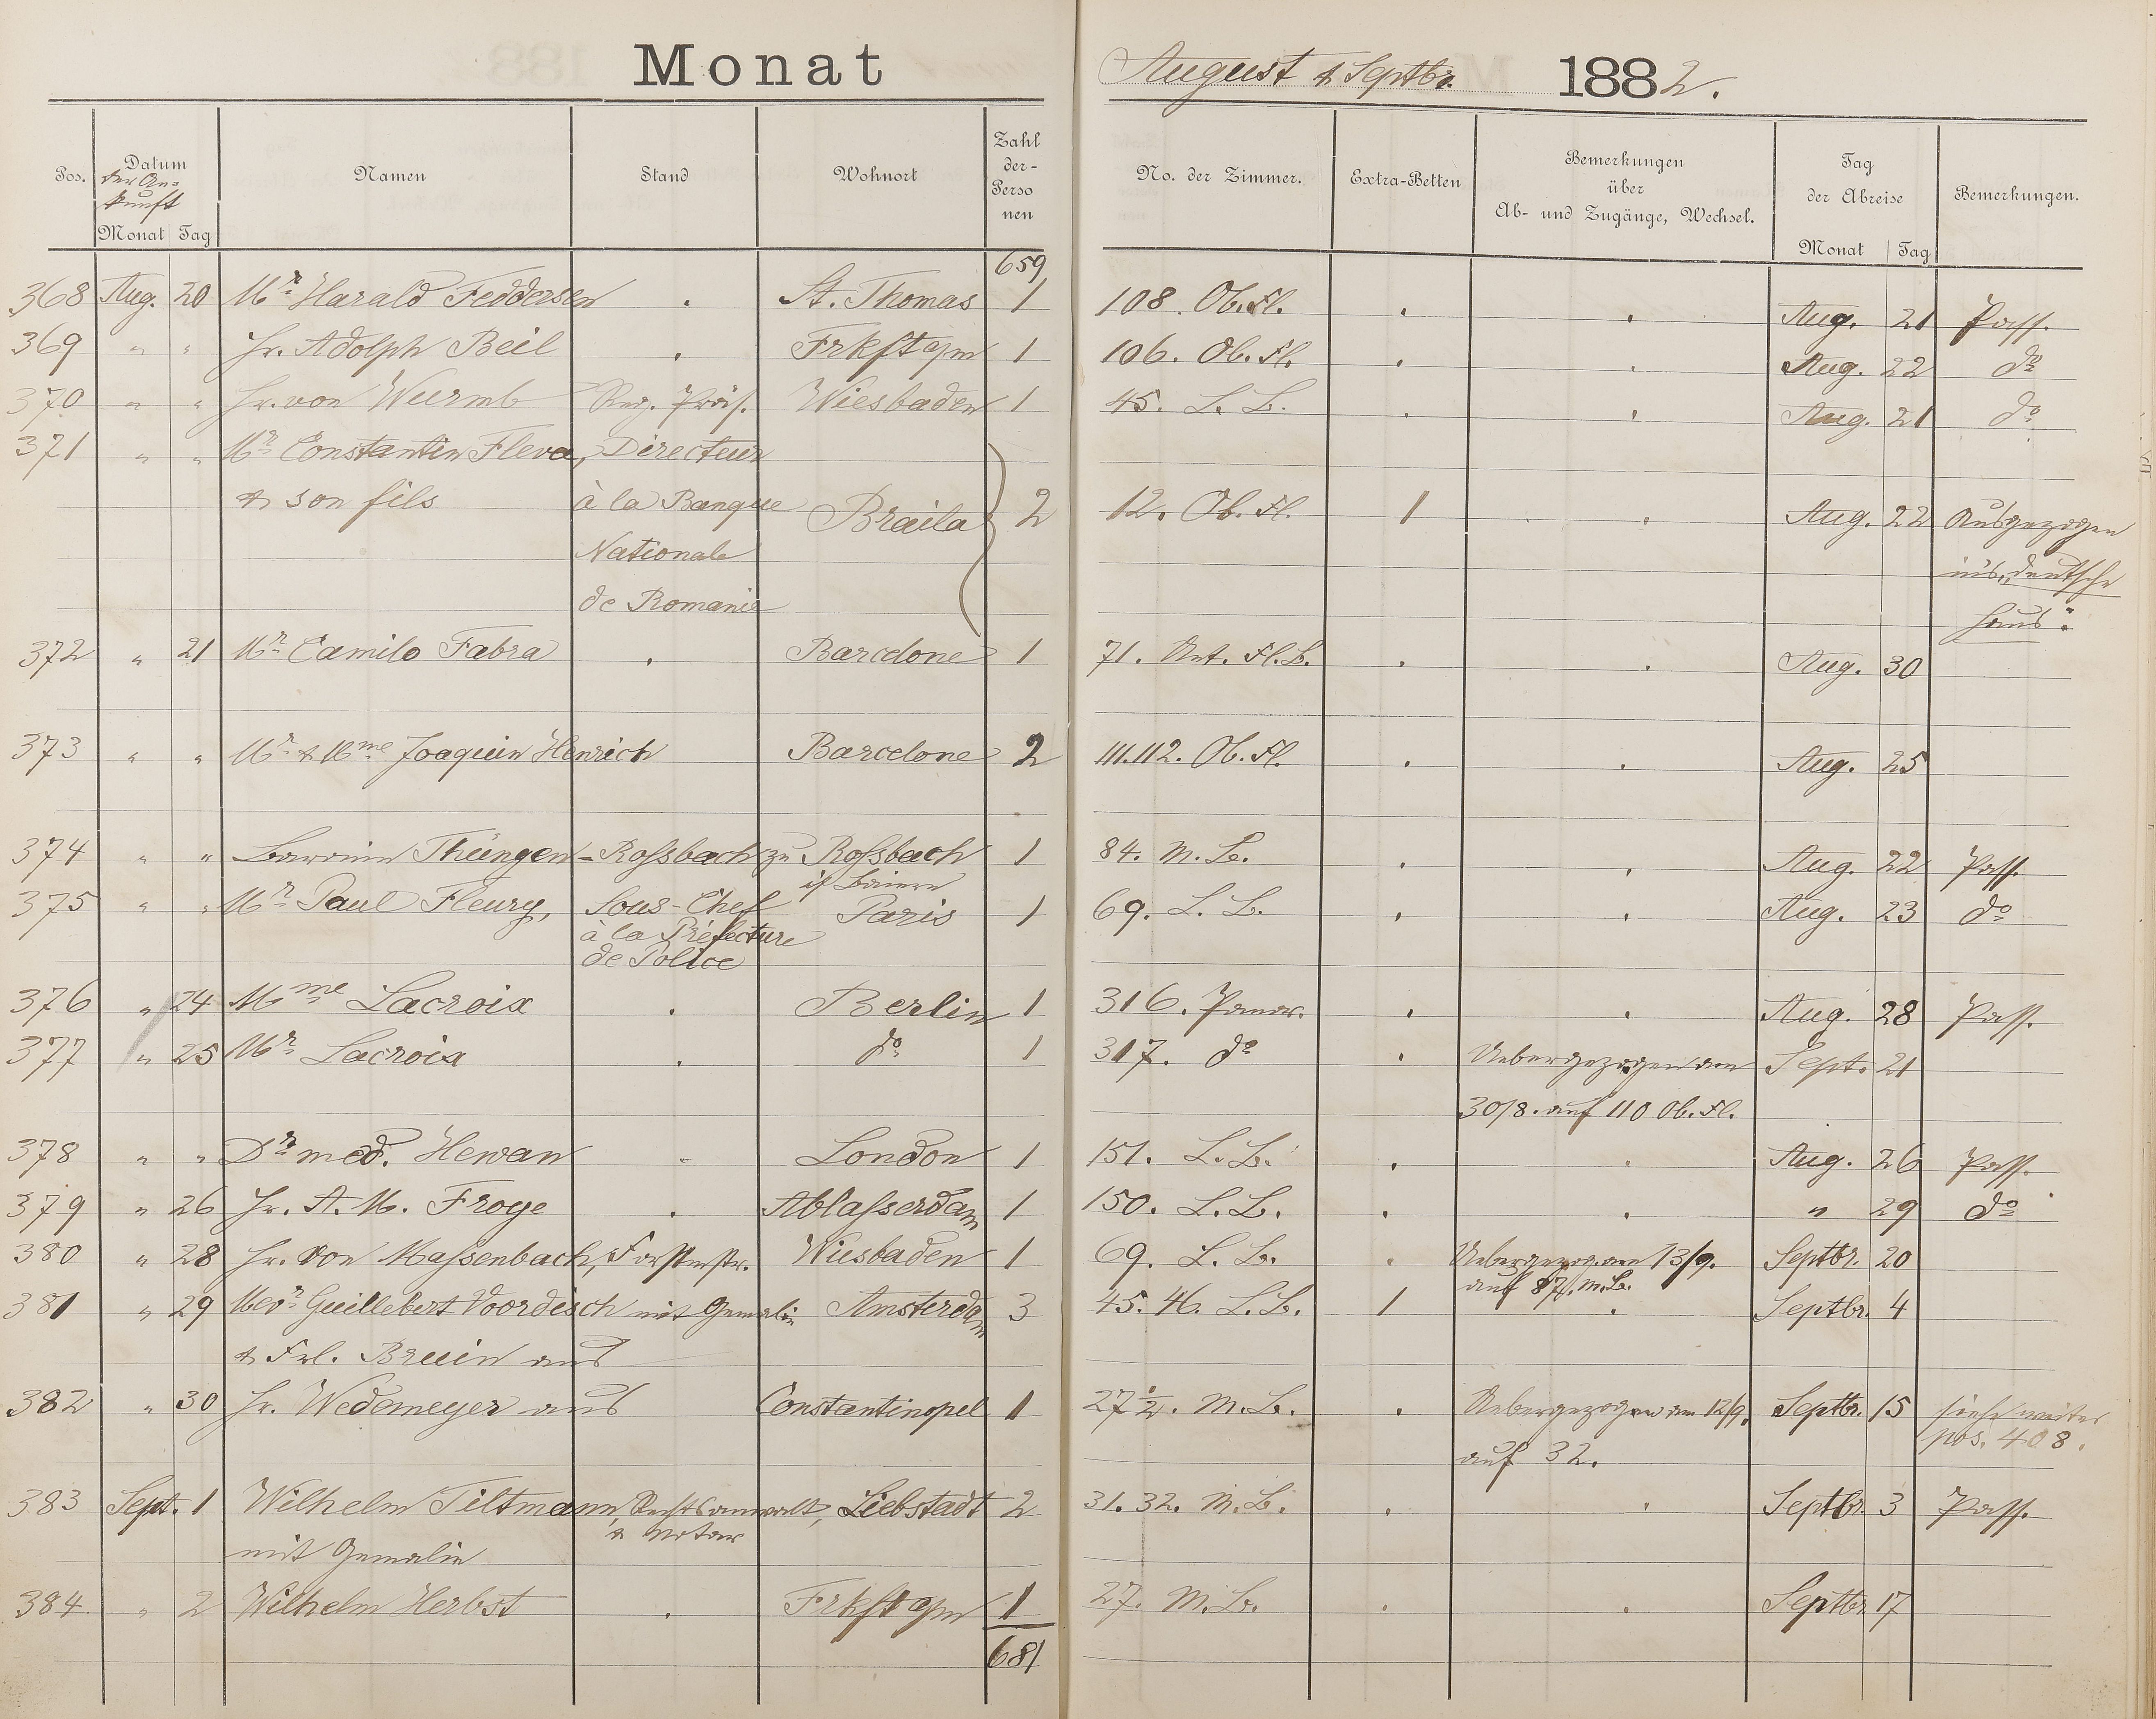 Monat August & Septbr. 1882.
Pos. Datum der Ankunft Monat Tag Namen Stand Wohnort Zahl der Personen No. der Zimmer. Extra-Betten Bemerkungen über Ab- und Zugänge, Wechsel. Tag der Abreise Monat Tag Bemerkungen.
659
368 Aug. 20 Mr. Harald Feddersen . St. Thomas 1 108. Ob. Fl. . . Aug. 21 Pass.
369 " " Hr. Adolph Beil . Frkft a/m 1 106. Ob. Fl. . . Aug. 22 do
370 " " Hr. von Wurmb Reg. Präs. Wiesbaden 1 45. L. B. . . Aug. 21 do
371 " " Mr. Constantin Fleva, Directeur
& son fils à la Banque Braila 2 12. Ob. Fl. 1 . Aug. 22 Ausgezogen
Nationale ins „deutsche
de Romanie Haus".
372 " 21 Mr. Camilo Fabra . Barcelone 1 71. Unt. Fl. B. . . Aug. 30
373 " " Mr. & Mme Joaquin Henrich Barcelone 2 111.112. Ob. Fl. . . Aug. 25
374 " " Baronin Thüngen-Roßbach zu Roßbach 1 84. M. B. . . Aug. 22 Pass.
i/ Baiern
375 " " Mr. Paul Fleury, Sous-Chef Paris 1 69. L. B. . . Aug. 23 do
à la Préfecture
de Police
376 " 24 Mme Lacroix . Berlin 1 316. Panor. . . Aug. 28 Pass.
377 " 25 Mr. Lacroix . do 1 317. do . Uebergezogen am Sept. 21
30/8. auf 110 Ob. Fl.
378 " " Dr. med. Hewan - London 1 151. L. B. . . Aug. 26 Pass.
379 " 26 Hr. A. M. Froge . Ablasserdam 1 150. L. B. . . " 29 do
380 " 28 Hr. von Massenbach, Forstmstr. Wiesbaden 1 69. L. B. . Uebergezog. am 13/9. Septbr. 20
auf 87. M. B.
381 " 29 Mevr. Guillebert Voordisch mit Gemalin Amsterdam 3 45. 46. L. B. 1 . Septbr. 4
& Frl. Bruin aus
382 " 30 Hr. Wedemeyer aus Constantinopel 1 27 1/2. M. B. . Uebergezogen am 12/9. Septbr. 15 siehe weiter
auf 32. pos. 408.
383 Sept. 1 Wilhelm Tiltmann, Rechtsanwalt, Liebstadt 2 31. 32. M. B. . . Septbr. 3 Pass.
& Notar
mit Gemalin
384 " 2 Wilhelm Herbst . Frkft a/m 1 27. M. B. . . Septbr. 17
681